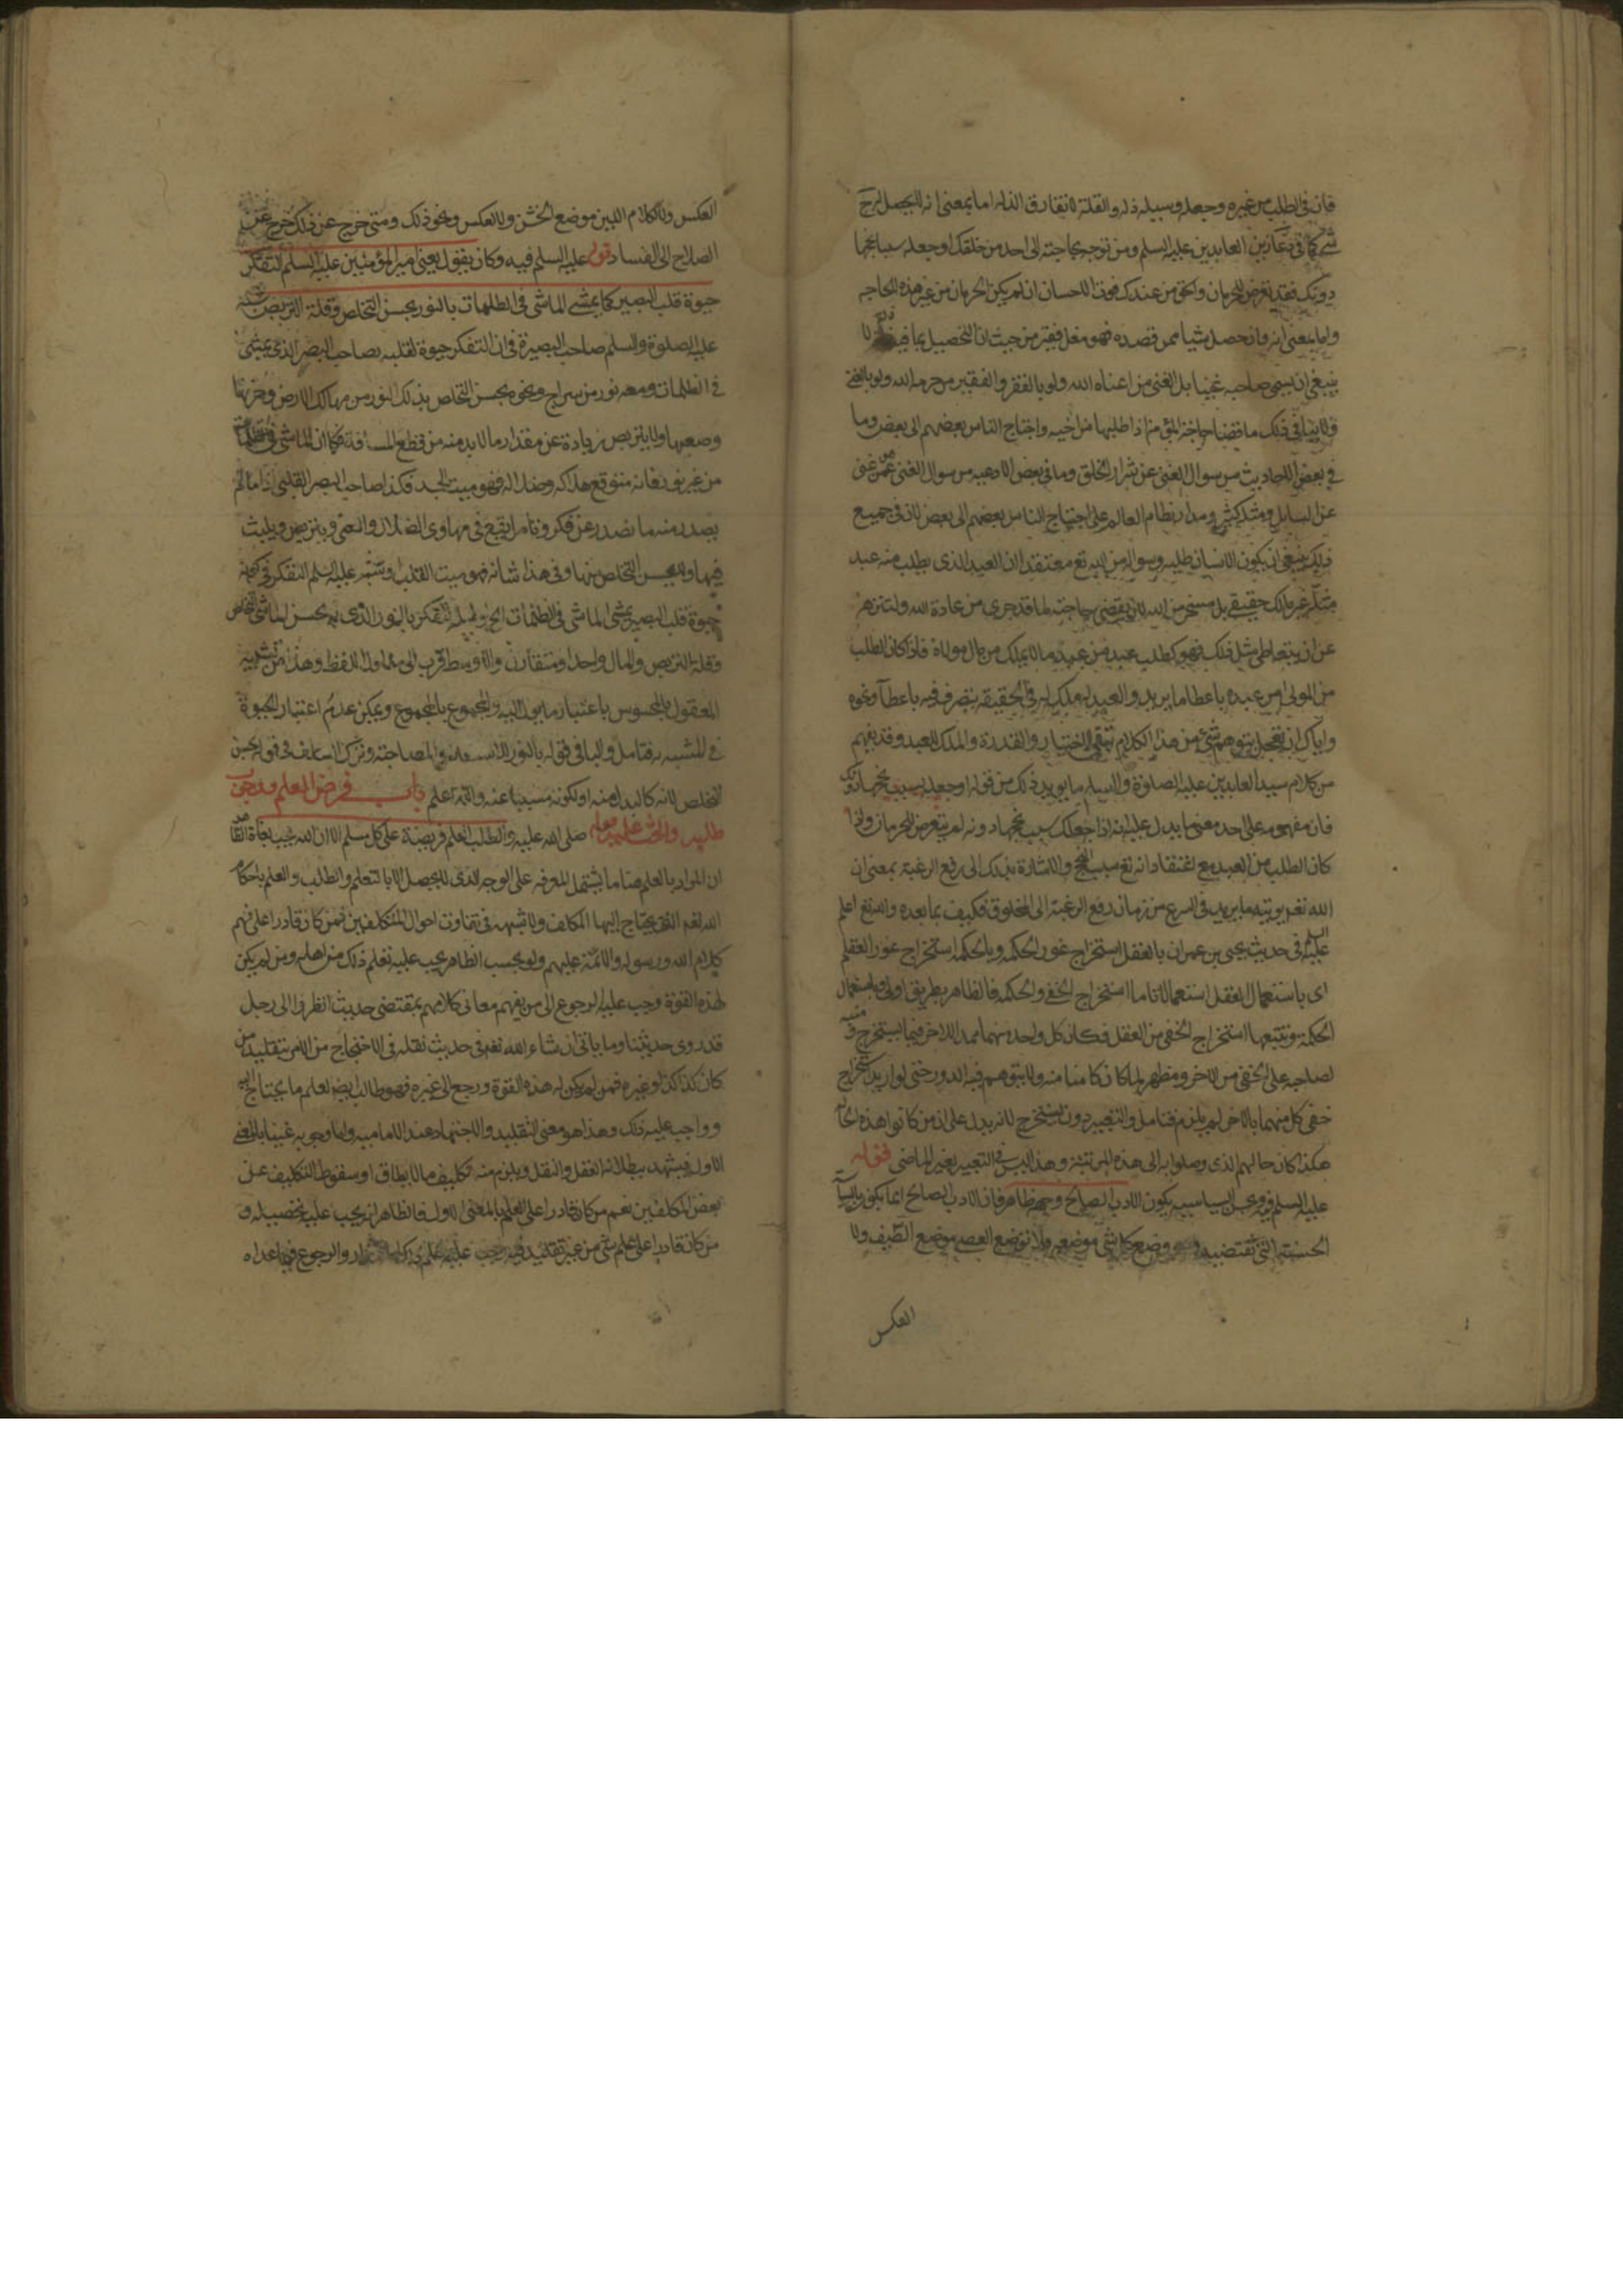 فان في الطلب من غيره وجعله وسيله ذله والقلة لا تفارق الذله اما بمعنى انه لا يحصل له
شي كما في دعا زين العابدين عليه السلم ومن توجه بحاجته الى احد من خلقك او جعله سبب نجحها
دونك فقد تعرض للحرمان واستحق من عندك فوت الاحسان ان لم يكن الحرمان من غير هذه الحاجه
واما بمعنى انه وان حصل شيا ممن قصده فهو مقل فقير من حيث ان التحصيل بما فيه لا
ينبغي ان يسمى صاحبه غنيا بل الغنى من اغناه الله ولو بالفقر والفقير من حرمه الله ولو بالغنى
ولا ينافي ذلك ما قضا حاجة المؤمن اذا طلبها من اخيه واحتياج الناس بعضهم الى بعض وما
في بعض الاحاديث من سوال الغنى عن شرار الخلق وما في بعض الادعيه من سوال الغنى عمن غنى
عن السايل ومثله كثير ومدار نظام العالم على احتياج الناس بعضهم الى بعض لان في جميع
ذلك ينبغي ان يكون الانسان طلبه وسواله من الله تع معتقدا ان العبد الذي يطلب منه عبد
مثله غير مالك حقيقة بل مسخر من الله لان يقضي حاجته لما قد جرى من عادة الله ولتنزهه
عن ان يتعاطى مثل ذلك فهو كطلب عبد من عبد ما لا يملك من مال مولاه فاذا كان الطلب
من المولى امر عبده باعطا ما يريد والعبد لا يملك له في الحقيقة بتصرف فيه باعطآء ونحوه
واياك ان تعجل بتوهم شي من هذا الكلام بنفي الاختيار والقدرة والملك للعبد وقد يفهم
من كلام سيد العابدين عليه الصلوة والسلم ما يويد ذلك من قوله او جعله سبب نجحها دونك
فان مفهومه على احد معنييه يدل على انه اذا جعلك سبب نجحها دونه لم يتعرض للحرمان ولذا
كان الطلب من العبد مع اعتقاد انه تع سبب النجح والاشارة بذلك الى رفع الرغبة بمعنى ان
الله تعم يوتيه ما يريد في اسرع من زمان رفع الرغبة الى المخلوق فكيف بما بعده والله تع اعلم
عليه السلم في حديث يحيى بن عمران بالعقل استخراج غور الحكمه وبالحكمه استخراج غور العقل
اى باستعمال العقل استعمالا تاما استخراج الخفي والحكمه فالظاهر بطريق اولى وباستعمال
الحكمة وتتبعها استخراج الخفي من العقل فكان كل واحد منهما ممد للاخر فيما يستخرج منه
لصاحبه على الخفي من الاخر ومظهر لما كان كامنا منه ولا يتوهم فيه الدور حتى لو اريد استخراج
خفى كل منهما بالاخر لم يلزم فتامل والتعبير دون يستخرج لانه يدل على ان من كانوا هذه الحال
هكذا كان حالهم الذي وصلوا به الى هذه المرتبة وهذا ليس في التعبير بغير الماضى قوله
عليه السلم فيه وبحسن السياسه يكون الادب الصالح وجهه ظاهر فان الادب الصالح انما يكون بالسياسة
الحسنه التي تقتضيه وضع كل شي موضعه ولا توضع العصى موضع السيف ولا
العكس
العكس ولا الكلام اللين موضع الخشن ولا العكس ونحو ذلك ومتى خرج عن ذلك خرج عن
الصلاح الى الفساد قوله عليه السلم فيه وكان يقول يعني امير المؤمنين عليه السلم التفكر
حيوة قلب البصير كما يمشي الماشي في الظلمات بالنور بحسن التخلص وقلة التربص شبه
عليه الصلوة والسلم صاحب البصيرة في ان التفكر حيوة لقلبه بصاحب البصر الذي يمشى
في الظلمات ومعه نور من سراج ونحوه بحسن التخلص بذلك النور من مهالك الارض وحزنها
وصعبها ولا يتربص زيادة عن مقدار ما لا بد منه من قطع المسافة فكما ان الماشي في الظلمات
من غير نور فانه متوقع هلاكه وضلاله فهو ميت الجسد فكذا صاحب البصر القلبي اذا ما لم
يصدر منه ما يصدر عن فكر وتامل يقع في مهاوى الضلال والعمى ويتربص ويلبث
فيها ولا يحسن التخلص منها ومن هذا شانه فهو ميت القلب وشبه عليه السلم التفكر في كونه
حيوة قلب البصير بمشى الماشي في الظلمات الخ ولعله التفكر بالنور الذى به يحسن الماشي التخلص
وقلة التربص والمال واحد او متقارب والاوسط اقرب الى مدلول اللفظ وهذا من تشبيه
المعقول بالمحسوس باعتبار ما يول اليه والمجموع بالمجموع ويمكن عدم اعتبار الحيوة
في المشبه به فتامل والبا في قوله بالنور للاستعانة والمصاحبة وترك العاطف في قوله بحسن
التخلص لانه كالبدل منه او لكونه مسببا عنه والله اعلم باب فرض العلم ووجوب
طلبه والحث عليه قوله صلى الله عليه واله طلب العلم فريضة على كل مسلم الا ان الله يحب بغاة العلم
ان المراد بالعلم هنا ما يشتمل المعرفه على الوجه الذى لا يحصل الا بالتعلم والطلب والعلم باحكام
الله تعم التي يحتاج اليها المكلف ولا شبهة في تفاوت احوال المكلفين فمن كان قادرا على فهم
كلام الله ورسوله والائمة عليهم ولو بحسب الظاهر يجب عليه تعلم ذلك من اهله ومن لم يكن
له هذه القوة وجب عليه الرجوع الى من يفهم معاني كلامهم بمقتضى حديث انظروا الى رجل
قد روى حديثنا وما ياتي ان شاء الله تعم في حديث نقله في الاحتجاج من الامر بتقليد من
كان كذا كذا وغيره فمن لم يكن له هذه القوة ورجع الى غيره فهو طالب ايضا لعلم ما يحتاج اليه
وواجب عليه ذلك وهذا هو معنى التقليد والاجتهاد عند الاماميه واما وجوبه عينيا بالمعنى
الاول فيشهد ببطلانه العقل والنقل ويلزم منه تكليف ما لا يطاق او سقوط التكليف عن
بعض المكلفين نعم من كان قادرا على العلم بالمعنى الاول فالظاهر انه يجب عليه تحصيله و
من كان قادرا على علم شي من غير تقليد فيه وجب عليه علم ذلك والرجوع فيما عداه